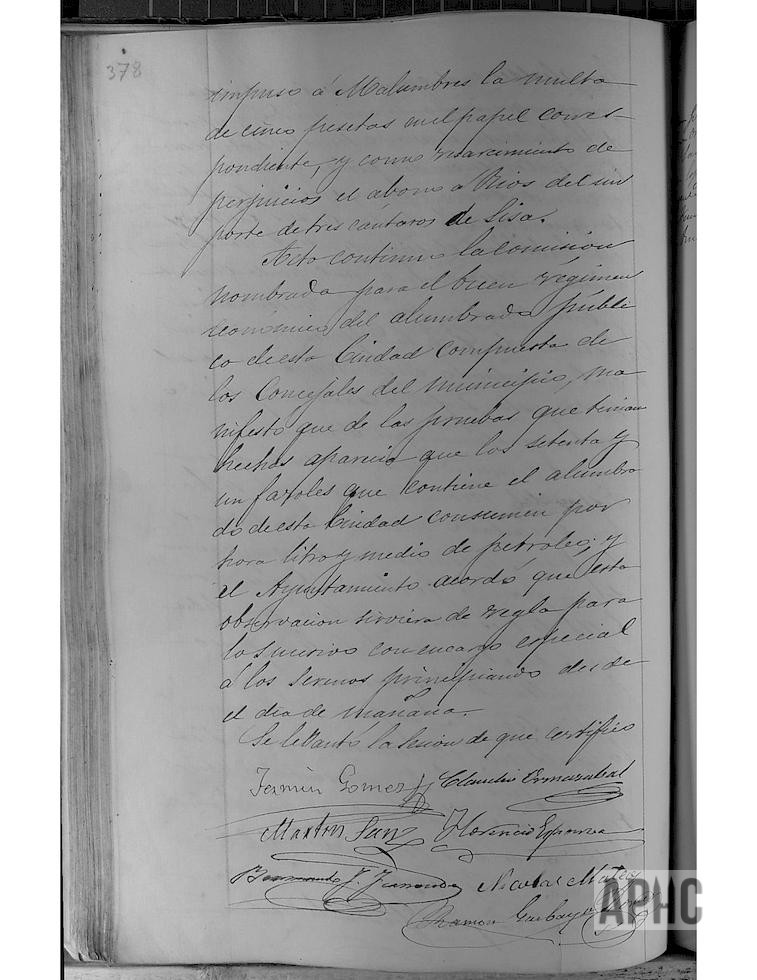 378
impuso á Malumbres la multa
de cinco pesetas en el papel corres-
pondiente, y como resarcimiento de
perjuicios el abono a Rios del im
porte de tres cántaros de Lisa.
Acto continuo la comisión
nombrada para el buen régimen
económico del alumbrado públi
co de esta Ciudad compuesta de
los Concejales del municipio, ma
nifestó que de las pruebas que tenian
hechas aparecia que los setenta y
un faroles que contiene el alumbra
do de esta Ciudad consumen por
hora litro y medio de petroleo; y
el Ayuntamiento acordó que esta
observacion sirviera de regla para
lo sucesivo con encargo especial
á los Serenos principiando desde
el dia de mañana.
Se levantó la Sesion de que certifico
Fermin Gomez Claudio Ormazabal
Martin Sanz Florencio Espinosa
Bernardo F. Nicolas Mateo
Ramon Garbayo
APHC